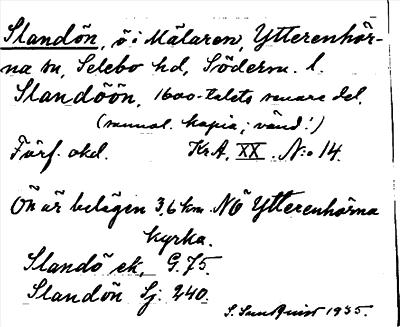 Slandön, ö i Mälaren, Ytterenhör-
na sn, Selebo hd, Söderm. l.
Slandöön, 1600-talets senare del.
(samml. kopia; vänd!)
Förf. okd. KrA, XX. N:o 14.
Ön är belägen 3,6 km. NÖ Ytterenhörna
kyrka.
Slandö ek, G. 75.
Slandön Sj. 240.
S. Sundquist 1935.